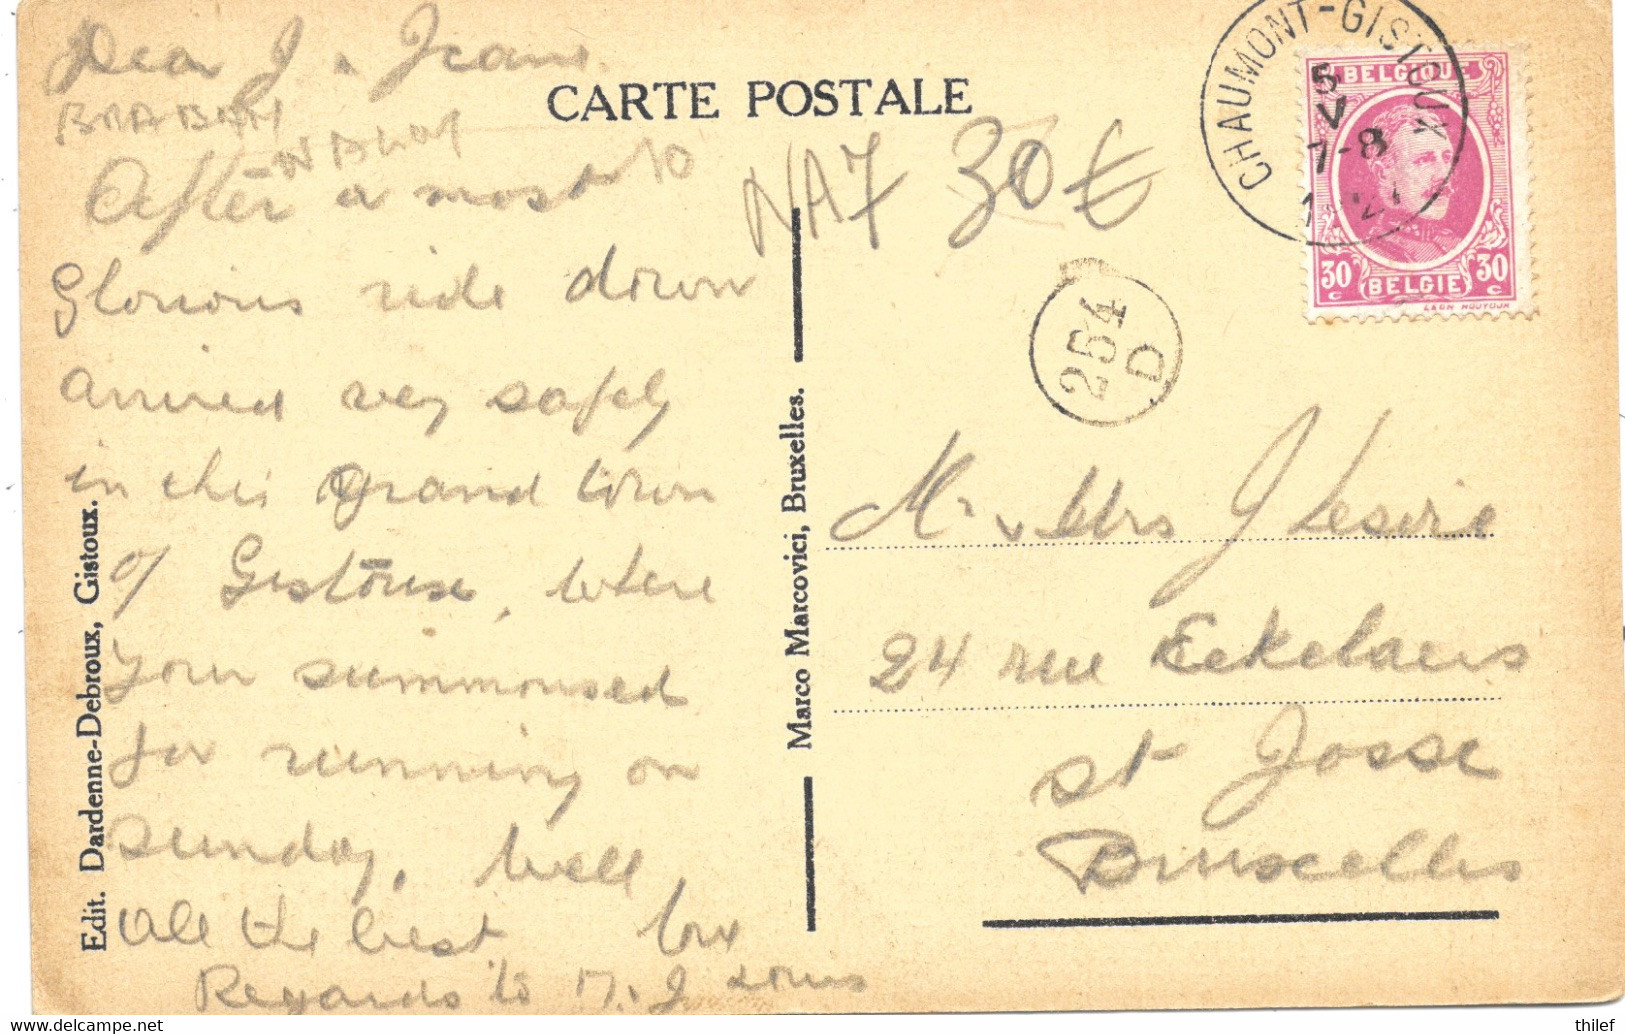 Dear J & Jeans.
BRABANT
WALLON
10
After a most
Glorious ride down
arrived very safely
in this grand town
of Gistoux, where
your summoned
for running on
Sunday. Well
All the best.
Regards to M. J
Edit. Dardenne-Debroux, Gistoux.
Marco Marcovici, Bruxelles.
CARTE POSTALE
NA7 30€
CHAUMONT-GISTOUX
5
V
7-8
BELGIQUE
30 c
30 c
BELGIE
LEON HOUYOUX
254
D
Mr & Mrs J Lesire
24 rue Eekelaers
St Josse
Bruxelles
thilef